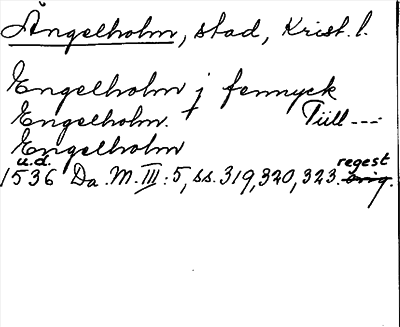 Ängelholm, stad, Krist. l.
Engelholm j fennyck
Engelholm. Tüll ---
Engelholm
u.d. regest
1536 Da. M. III:5, ss. 319, 320, 323. orig.